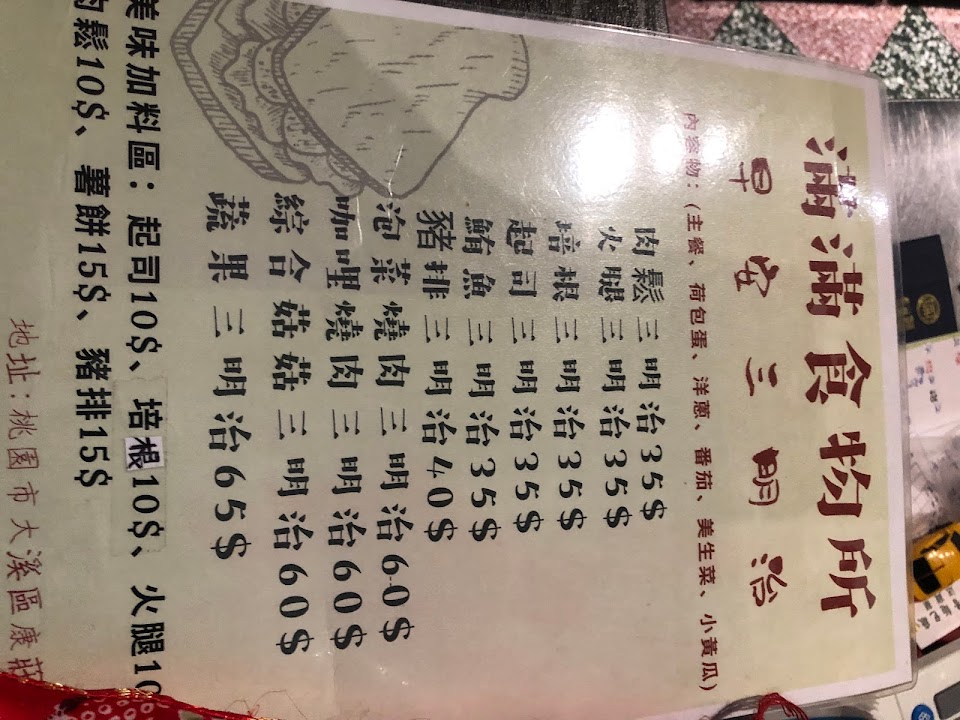 滿滿食物所
早安三明治
內容物：(主餐、荷包蛋、洋蔥、番茄、美生菜、小黃瓜)
肉鬆三明治35$
火腿三明治35$
培根三明治35$
起司三明治35$
鮪魚三明治35$
豬排三明治40$
泡菜燒肉三明治60$
咖哩燒肉三明治60$
綜合菇菇三明治60$
蔬果三明治65$
美味加料區：起司10$、培根10$、火腿10
肉鬆10$、薯餅15$、豬排15$
地址：桃園市大溪區康莊